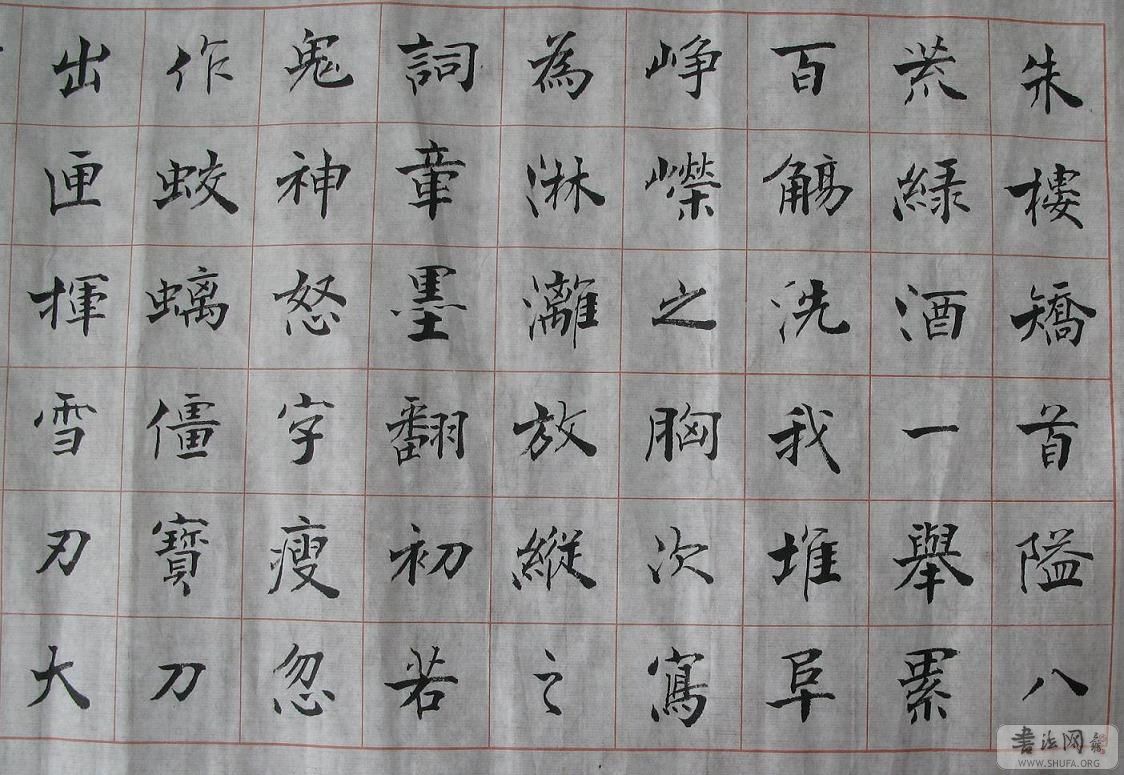 朱樓矯首隘八
荒綠酒一舉累
百觴洗我堆阜
崢嶸之胸次寫
為淋漓放縱之
詞章墨翻初若
鬼神怒字瘦忽
作蛟螭僵寶刀
出匣揮雪刃大
書法网
WWW.SHUFA.ORG